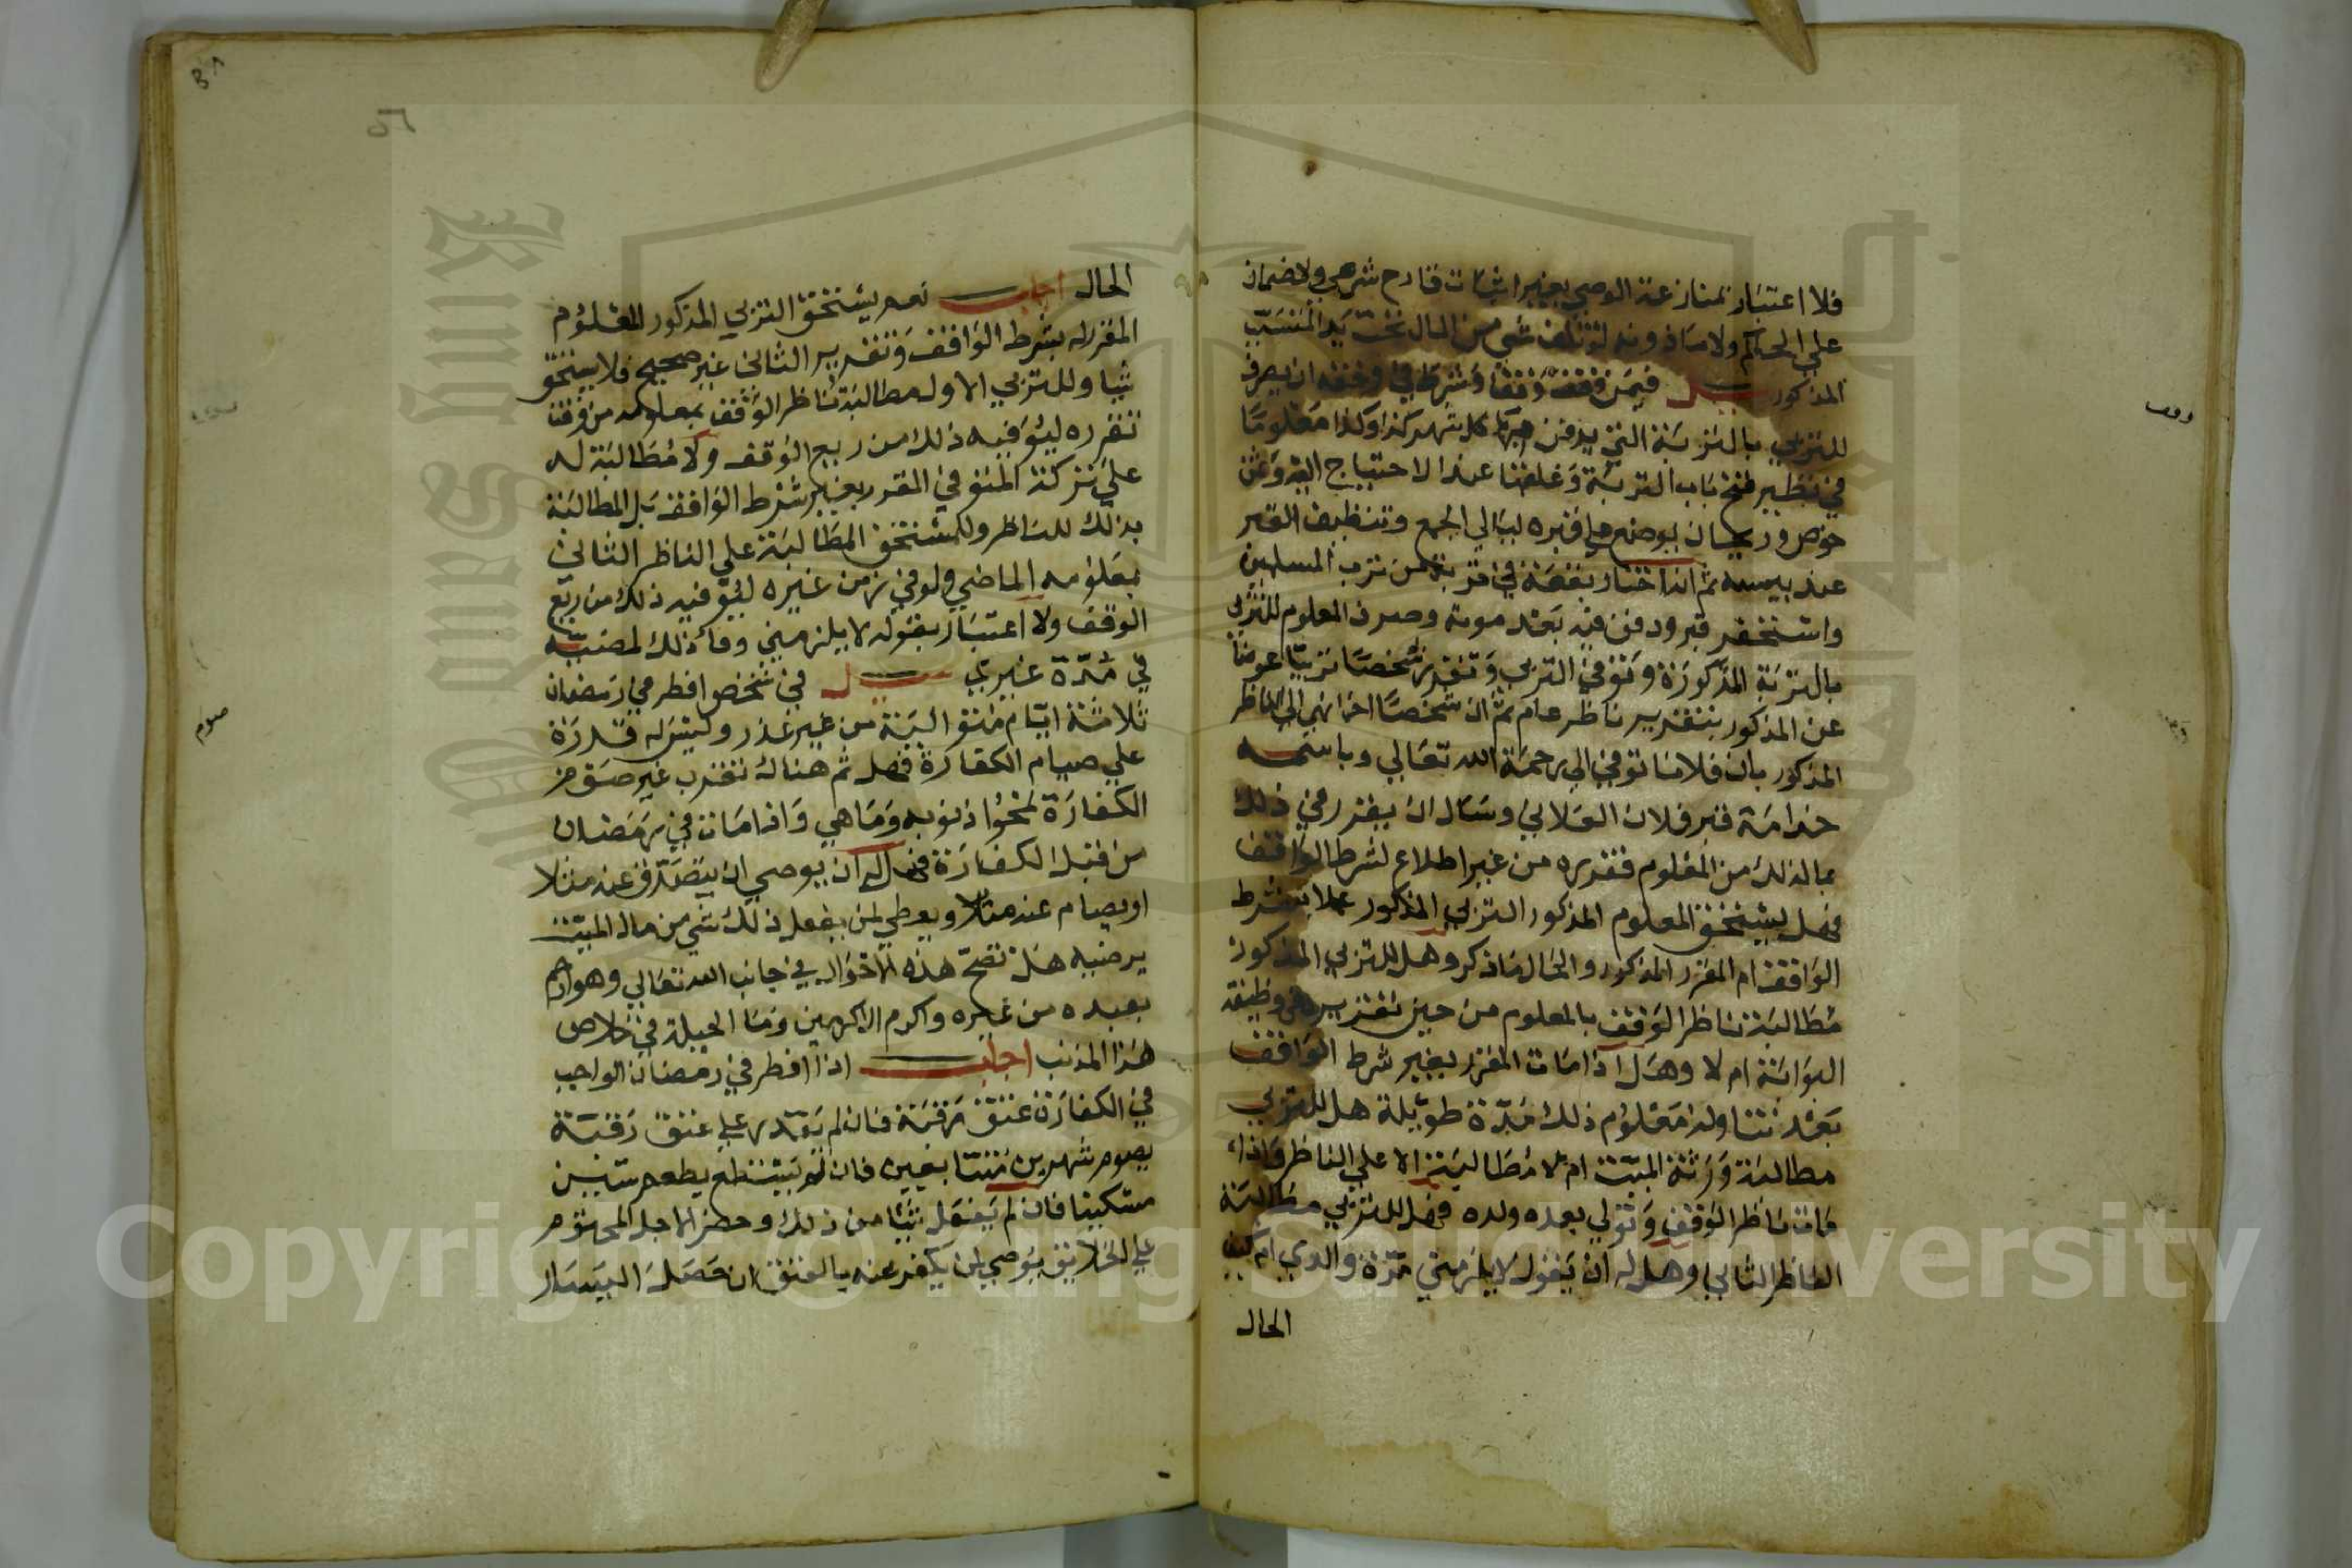 فلا اعتبار بمنازعة الوصي بغير اثبات قادح شرعي ولا ضمان
على الحاكم ولا ماذونه لو تلف شي من المال تحت يد المتسبب
المذكور سيل فيمن وقف وقفا وشرط في وقفه ان يصرف
للتربي بالتربة التي يدفن فيها كل شهر كذا وكذا معلوما
في نظير فتح باب التربة وغلقها عند الاحتياج اليه وعن
خوص وريحان يوضع على قبره ليالي الجمع وتنظيف القبر
عند يبسه ثم انه اختار بقعة في تربة من ترب المسلمين
واستحفر قبرا ودفن فيه بعد موته وصرف المعلوم للتربي
بالتربة المذكورة وتوفي التربي وتقرر شخصا تربيا عوضا
عن المذكور بتقرير ناظر عام ثم ان شخصا اخر انهى الى الناظر
المذكور بان فلانا توفي الى رحمة الله تعالى وباسمه
خدامة قبر فلان الفلاني وسال ان يقرر في ذلك
بما لذلك من المعلوم فقرره من غير اطلاع لشرط الواقف
فهل يستحق المعلوم المذكور التربي المذكور عملا بشرط
الواقف ام المقرر المذكور والحال ماذكر وهل للتربي المذكور
مطالبة ناظر الوقف بالمعلوم من حين تقريره في وظيفة
البوابة ام لا وهل اذا مات المقرر بغير شرط الواقف
بعد تناوله معلوم ذلك مدة طويلة هل للتربي
مطالبة ورثة الميت ام لا مطالبة الا على الناظر واذا
مات ناظر الوقف وتولى بعده ولده فهل للتربي مطالبة
الناظر الثاني وهل له ان يقول لا يلزمني مدة والدي ام كيف
الحال
وقف
الحال اجاب نعم يستحق التربي المذكور المعلوم
المقرر له بشرط الواقف وتقرير الثاني غير صحيح فلا يستحق
شيا وللتربي الاول مطالبة ناظر الوقف بمعلومه من وقت
تقرره ليوفيه ذلك من ريع الوقف ولا مطالبة له
على تركة المتوفي المقرر بغير شرط الواقف بل المطالبة
بذلك للناظر وللمستحق المطالبة على الناظر الثاني
بمعلومه الماضي ولو في زمن غيره ليوفيه ذلك من ريع
الوقف ولا اعتبار بقوله لا يلزمني وفاء ذلك لمضيه
في مدة غيري سيل في شخص افطر في رمضان
ثلاثة ايام متوالية من غير عذر وليس له قدرة
على صيام الكفارة فهل ثم هناك تقرب غير صوم
الكفارة لمحو اذنوبه وما هي واذا مات في رمضان
من قبل الكفارة فهل له ان يوصي ان يتصدق عنه مثلا
او يصام عنه مثلا ويعطي لمن يفعل ذلك شي من مال الميت
يرضيه هل تصح هذه الاحوال في جانب الله تعالى وهو ارحم
بعبده من غيره واكرم الاكرمين وما الحيلة في خلاص
هذا المذنب اجاب اذا افطر في رمضان الواجب
في الكفارة عتق رقبة فان لم يقدر على عتق رقبة
يصوم شهرين متتابعين فان لم يستطع يطعم ستين
مسكينا فان لم يفعل شيئا من ذلك وحضر الاجل المحتوم
على الخلايق يوصي لمن يكفر عنه بالعتق ان حصل اليسار
صوم
Copyright © King Saud University